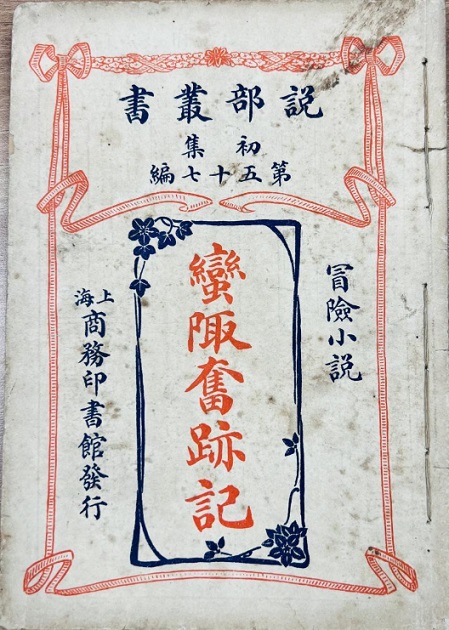 說部叢書
初集
第五十七編
冒險小説
蠻陬奮跡記
上海商務印書館發行